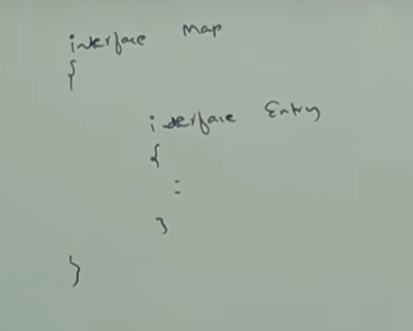 interface Map
{
interface Entry
{
:
}
}